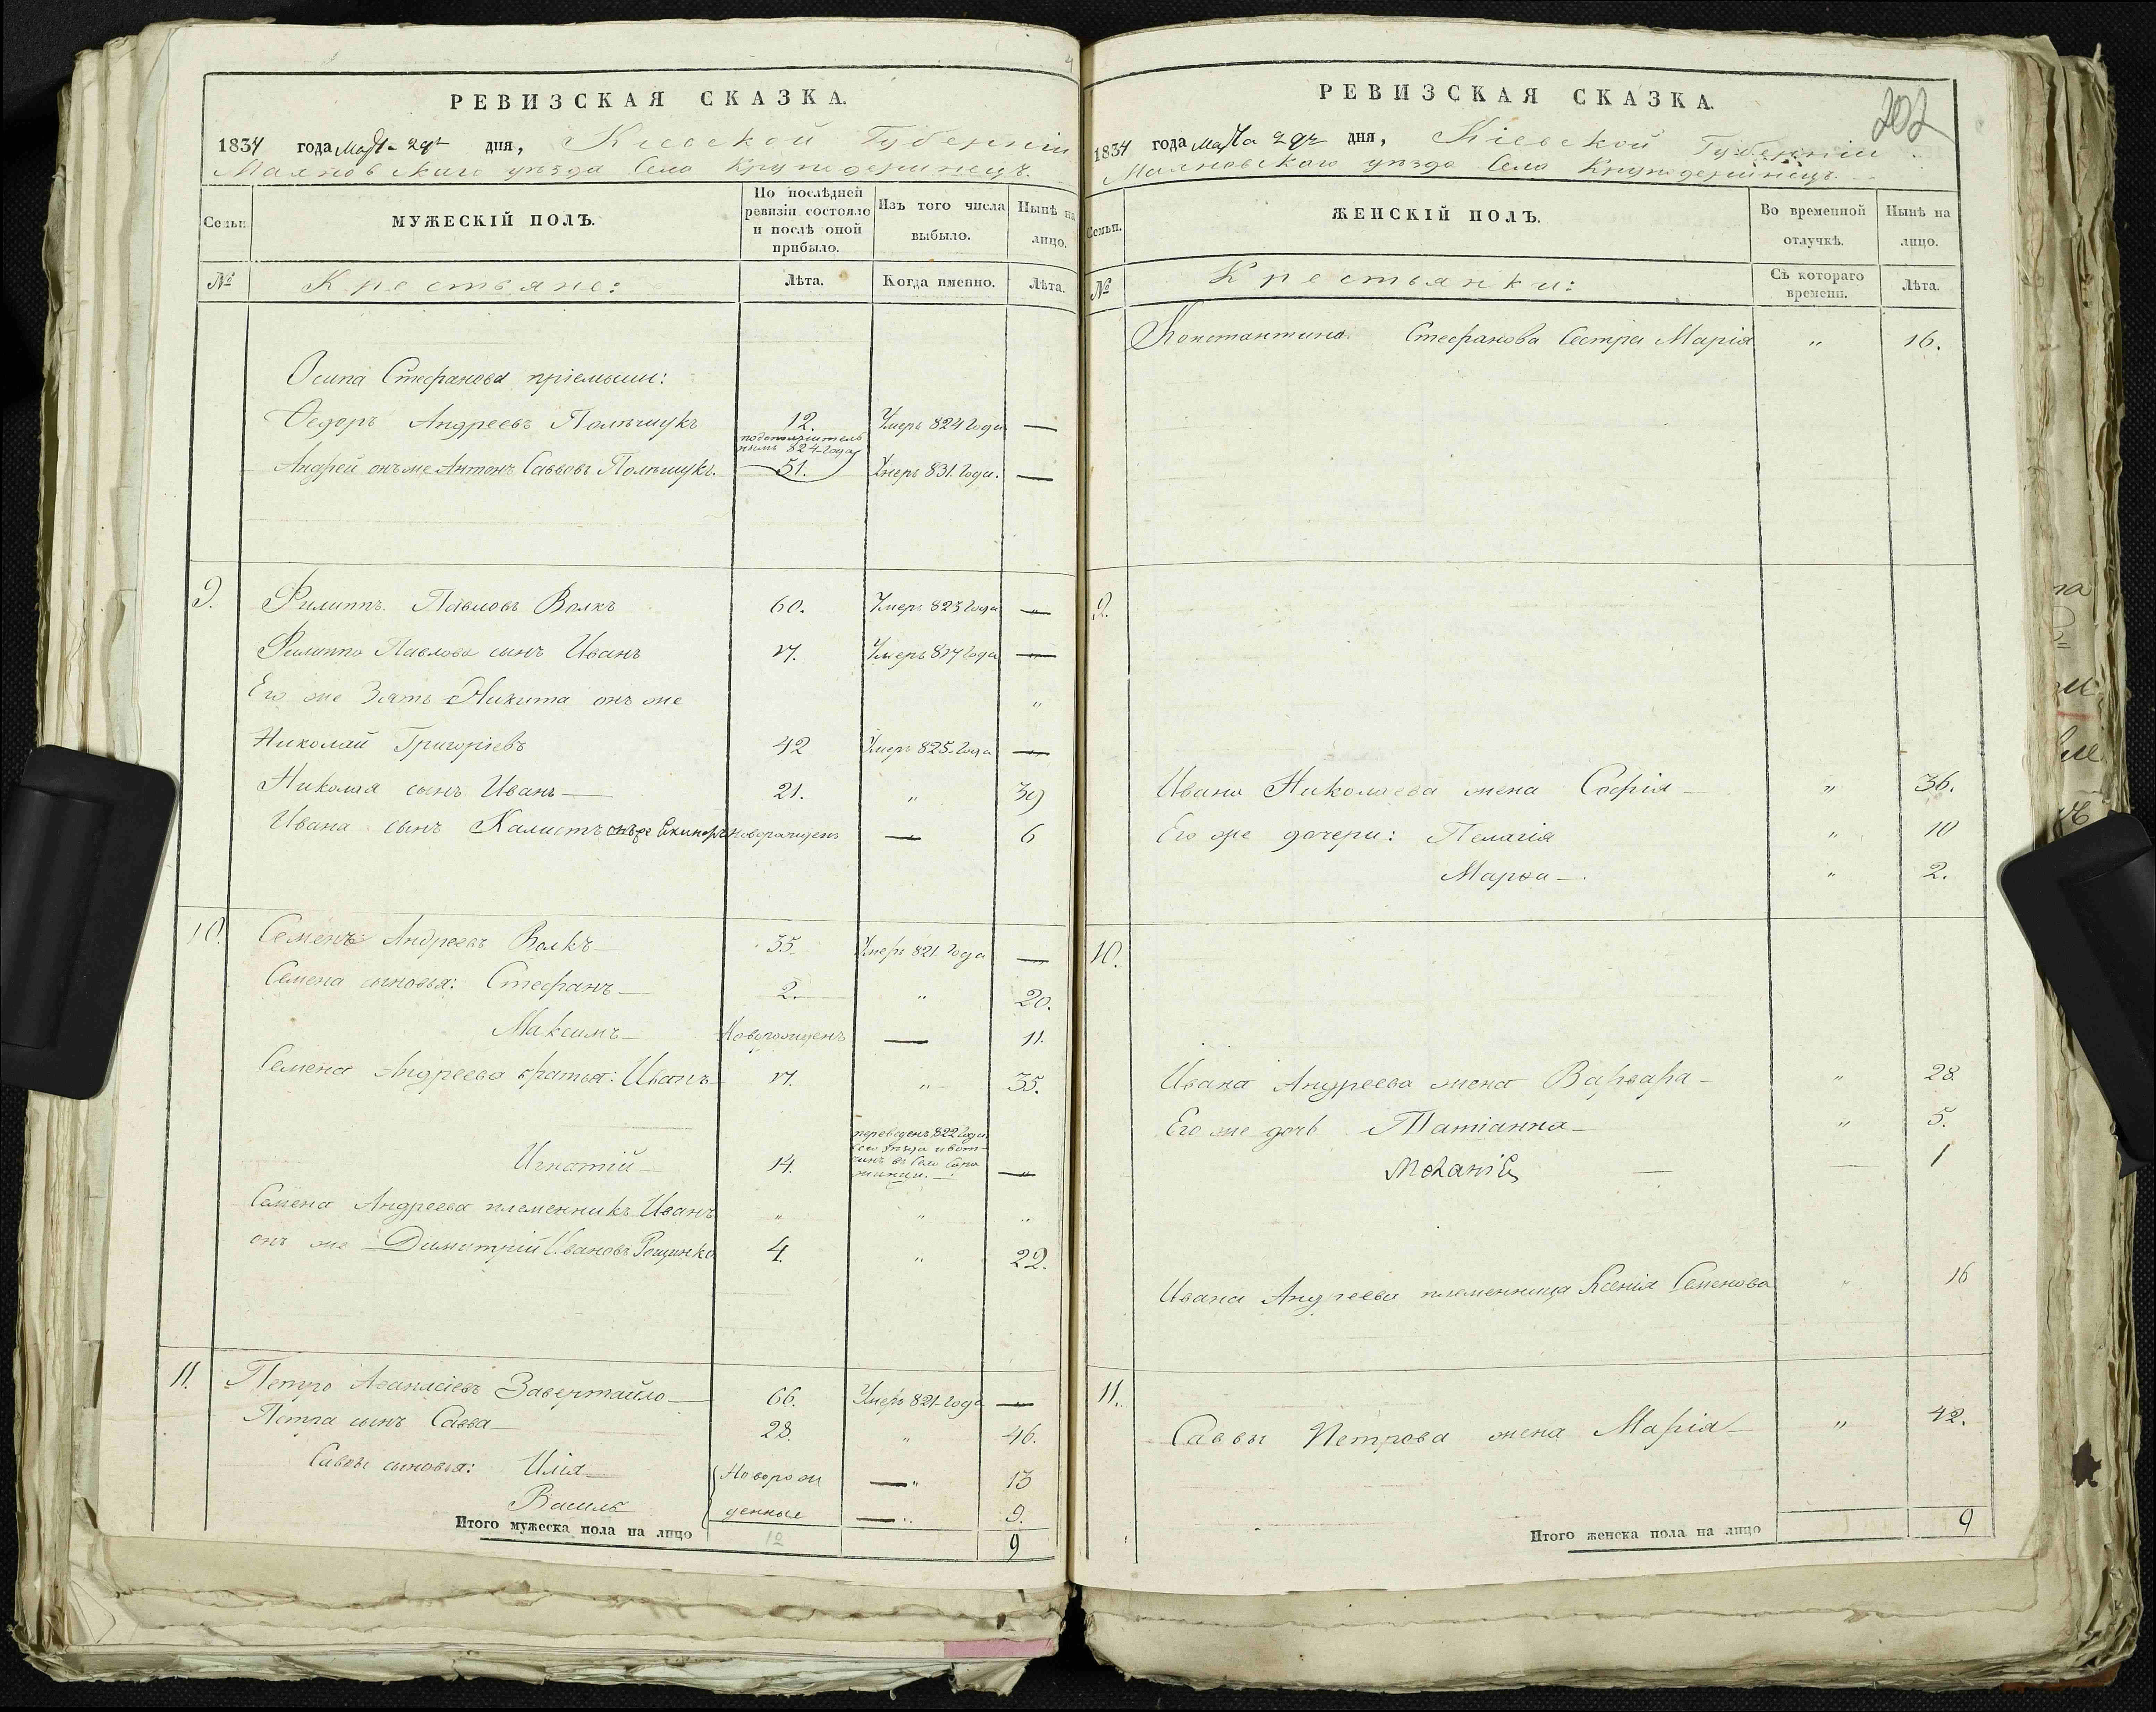 РЕВИЗСКАЯ СКАЗКА.
1834 года Марта 29го дня, Кіевской Губерніи
уѣзда Села
Семьи. МУЖЕСКІЙ ПОЛЪ. По послѣдней ревизіи состояло и послѣ оной прибыло. Изъ того числа выбыло. Нынѣ на лицо.
№ Крестьяне: Лѣта. Когда именно. Лѣта.
Осипа Стефанова пріемыши:
Ѳедоръ Андреевъ Полѣщукъ 12. Умеръ 824 Года —
824 Года
Андрей онъ же Антонъ Саввовъ Полѣщукъ. 51. Умеръ 831. Года. —
9. Филиппъ Павловъ Волкъ 60. Умеръ 823 Года —
Филиппа Павлова сынъ Иванъ 17. Умеръ 817 Года —
Его же Зять Никита онъ же "
Николай Григоріевъ 42 Умеръ 825 Года —
Николая сынъ Иванъ — 21. " 39
Ивана сынъ Калистъ новорожденъ — 6
10. Семенъ Андреевъ Волкъ — 35. Умеръ 821 Года —
Семена сыновья: Стефанъ — 2. " 20.
Максимъ — Новорожденъ — 11.
Семена Андреева братья: Иванъ — 17. " 35.
переведенъ 822 Года
Игнатій — 14. —
Семена Андреева племенникъ Иванъ " " "
онъ же Димитрій Ивановъ 4. " 22.
11. Петро Аѳанасіевъ Завертайло — 66. Умеръ 821 Года —
Петра сынъ Савва — 28. " 46.
Саввы сыновья: Илія — Новорож — " 13
Василь денные — " 9.
Итого мужеска пола на лицо 12 9
202
РЕВИЗСКАЯ СКАЗКА.
1834 года Марта 29го дня, Кіевской Губерніи
уѣзда Села
Семьи. ЖЕНСКІЙ ПОЛЪ. Во временной отлучкѣ. Нынѣ на лицо.
№ Крестьянки: Съ котораго времени. Лѣта.
Константина Стефанова Сестра Марія " 16.
9.
Ивана Николаева жена Софія — " 36.
Его же дочери: Пелагія " 10
Марѳа — " 2.
10.
Ивана Андреева жена Варвара — " 28.
Его же дочь Татіанна — " 5.
— — 1
Ивана Андреева племенница Ксенія Семенова " 16
11.
Саввы Петрова жена Марія — " 42.
Итого женска пола на лицо 9